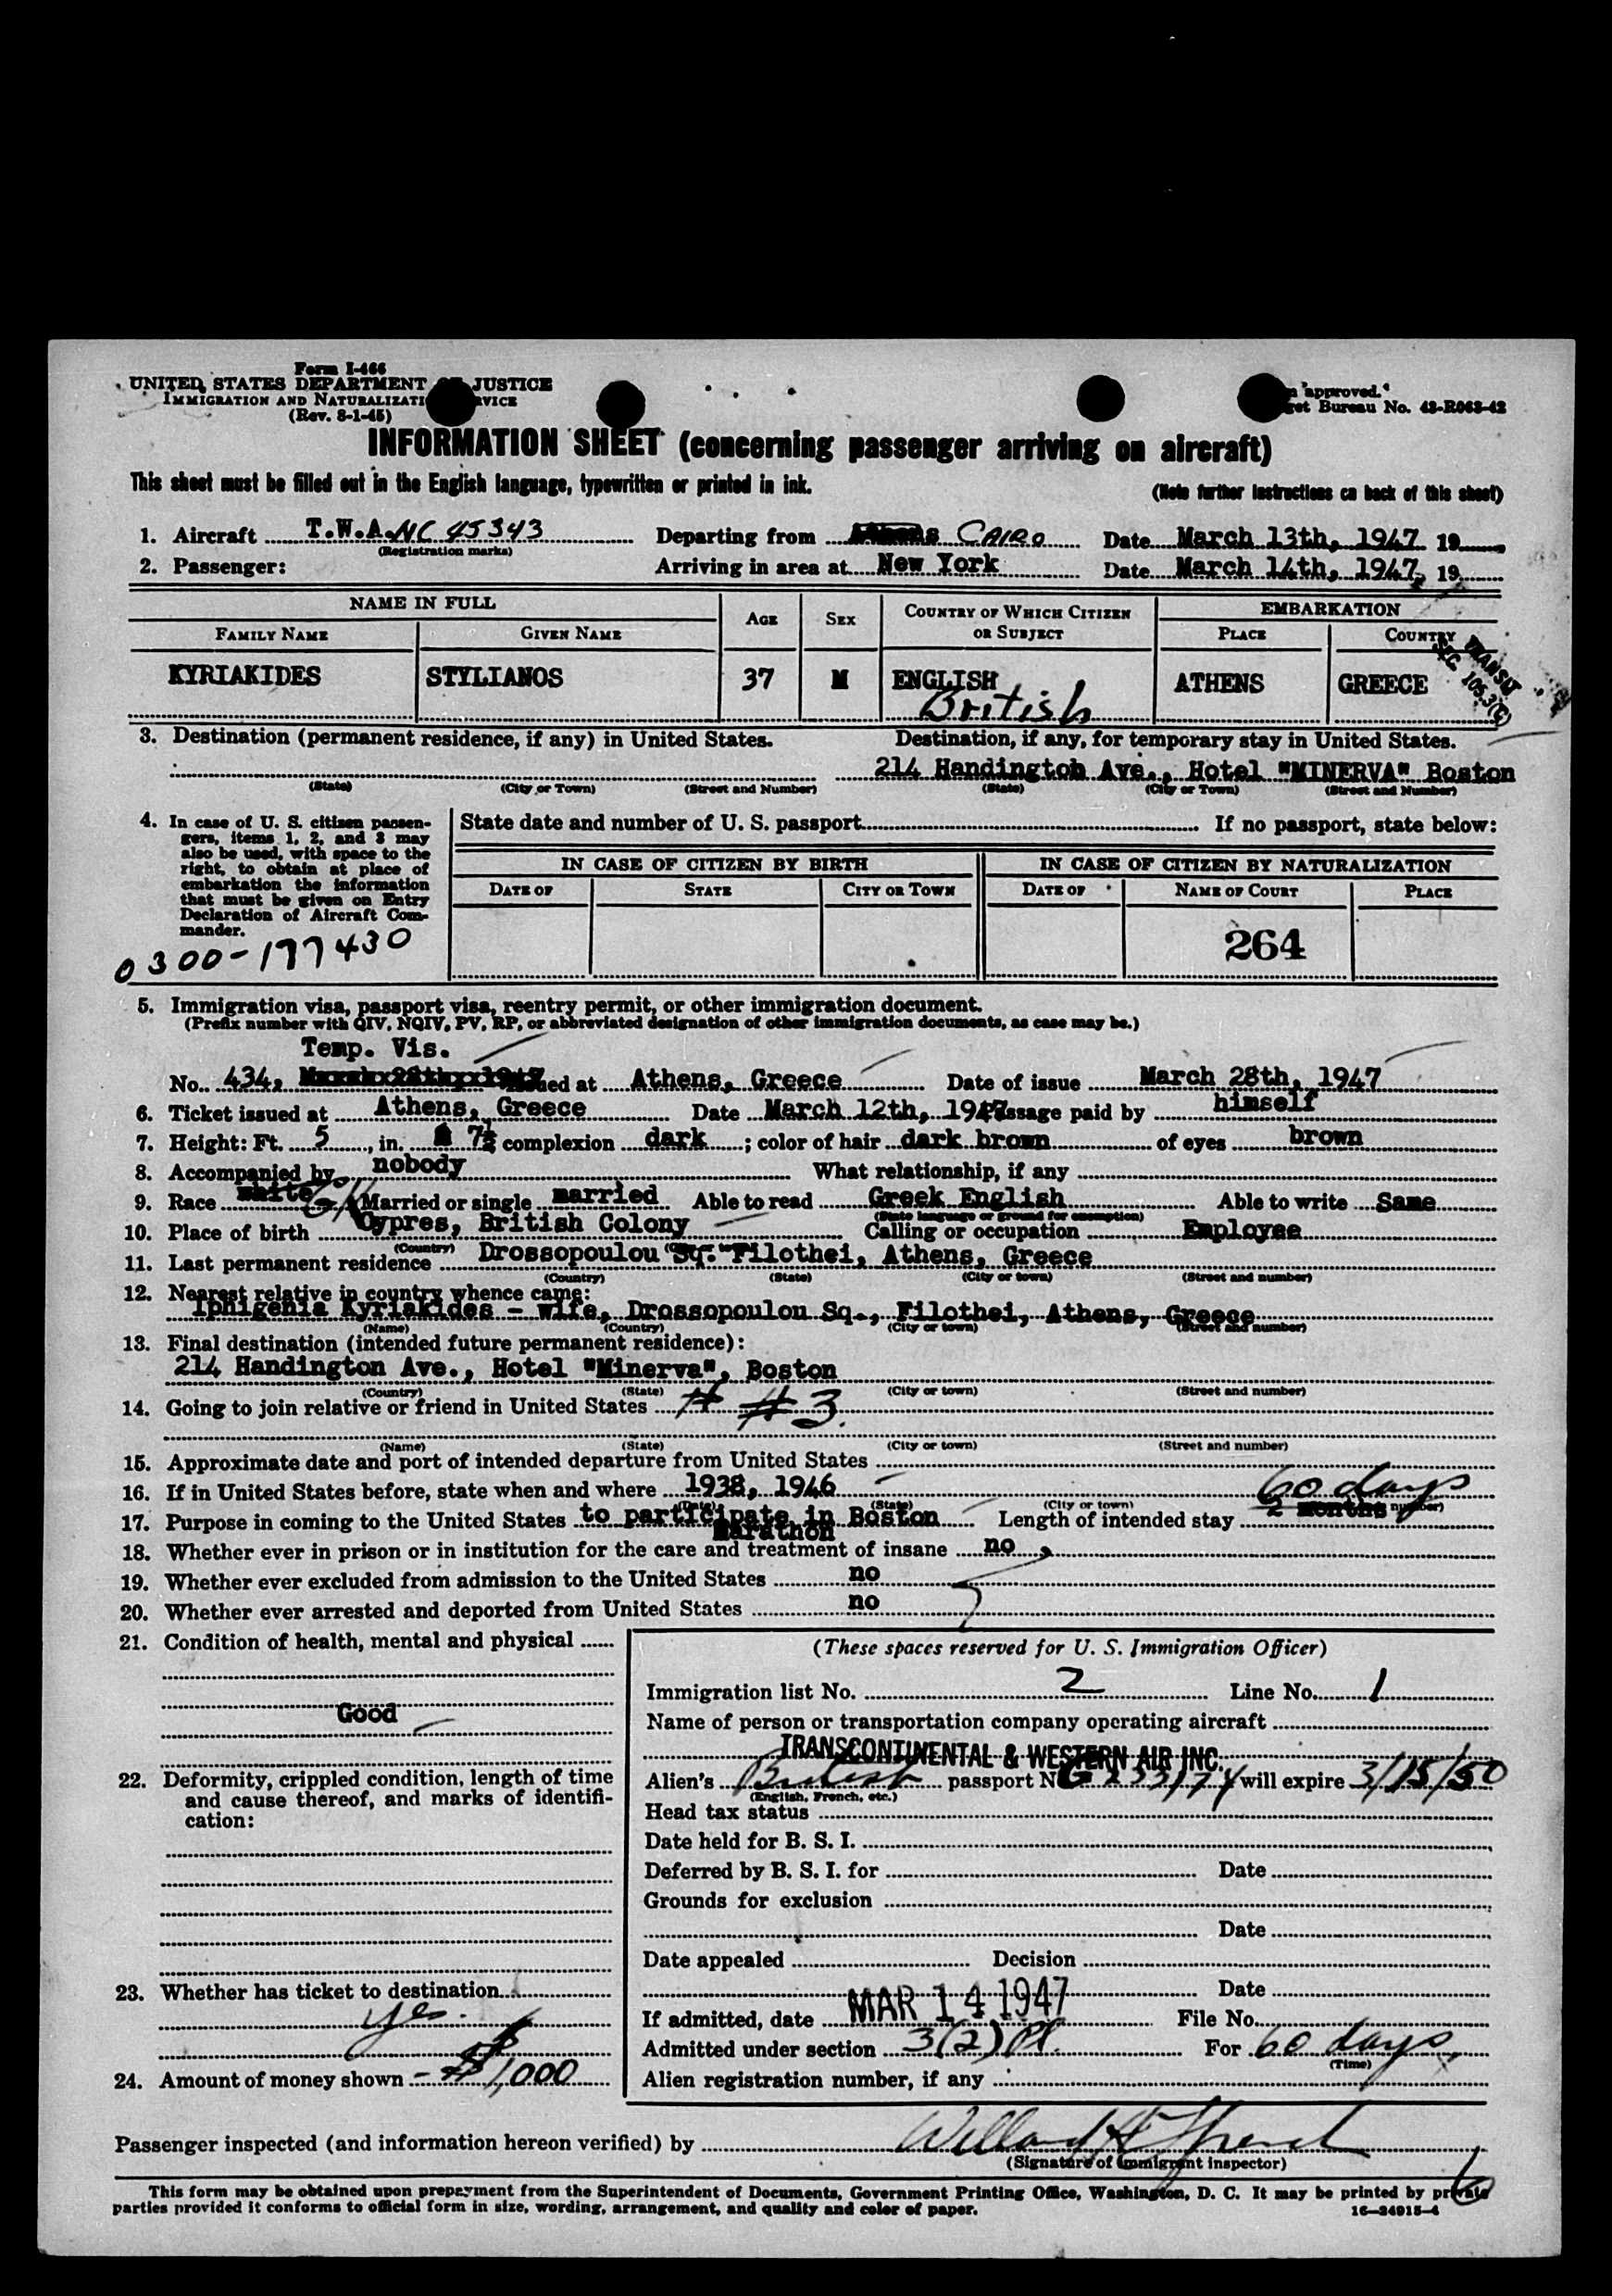 Form I-466
UNITED STATES DEPARTMENT OF JUSTICE
IMMIGRATION AND NATURALIZATI RVICE
(Rev. 8-1-45)
approved.
get Bureau No. 43-R063-42
INFORMATION SHEET (concerning passenger arriving on aircraft)
This sheet must be filled out in the English language, typewritten or printed in ink.
(Note further instructions on back of this sheet)
1. Aircraft T.W.A. NC 45343 Departing from Athens CAIRO Date March 13th, 1947 19
(Registration marks)
2. Passenger: Arriving in area at New York Date March 14th, 1947, 19
NAME IN FULL AGE SEX COUNTRY OF WHICH CITIZEN OR SUBJECT EMBARKATION
FAMILY NAME GIVEN NAME PLACE COUNTRY
KYRIAKIDES STYLIANOS 37 M ENGLISH ATHENS GREECE
British
TRANSIT
SEC 105.3(C)
3. Destination (permanent residence, if any) in United States. Destination, if any, for temporary stay in United States.
214 Handington Ave., Hotel "MINERVA" Boston
(State) (City or Town) (Street and Number) (State) (City or Town) (Street and Number)
4. In case of U. S. citizen passengers, items 1, 2, and 3 may also be used, with space to the right, to obtain at place of embarkation the information that must be given on Entry Declaration of Aircraft Commander.
0300-177430
State date and number of U. S. passport If no passport, state below:
IN CASE OF CITIZEN BY BIRTH IN CASE OF CITIZEN BY NATURALIZATION
DATE OF STATE CITY OR TOWN DATE OF NAME OF COURT PLACE
264
5. Immigration visa, passport visa, reentry permit, or other immigration document.
(Prefix number with QIV, NQIV, PV, RP, or abbreviated designation of other immigration documents, as case may be.)
Temp. Vis.
No. 434, March 28th, 1947 Issued at Athens, Greece Date of issue March 28th, 1947
6. Ticket issued at Athens, Greece Date March 12th, 1947 Passage paid by himself
7. Height: Ft. 5, in. 7½ complexion dark; color of hair dark brown of eyes brown
8. Accompanied by nobody What relationship, if any
9. Race white Gk Married or single married Able to read Greek English Able to write Same
(State language or ground for exemption)
10. Place of birth Cypres, British Colony Calling or occupation Employee
(Country)
11. Last permanent residence Drossopoulou Sq. Filothei, Athens, Greece
(Country) (State) (City or town) (Street and number)
12. Nearest relative in country whence came:
Iphigenia Kyriakides - wife, Drossopoulou Sq., Filothei, Athens, Greece
(Name) (Country) (City or town) (Street and number)
13. Final destination (intended future permanent residence):
214 Handington Ave., Hotel "Minerva", Boston
(Country) (State) (City or town) (Street and number)
14. Going to join relative or friend in United States # #3.
(Name) (State) (City or town) (Street and number)
15. Approximate date and port of intended departure from United States
16. If in United States before, state when and where 1938, 1946
(Date) (State) (City or town) number)
60 days
17. Purpose in coming to the United States to participate in Boston Length of intended stay 2 months
Marathon
18. Whether ever in prison or in institution for the care and treatment of insane no
19. Whether ever excluded from admission to the United States no
20. Whether ever arrested and deported from United States no
21. Condition of health, mental and physical
Good
22. Deformity, crippled condition, length of time and cause thereof, and marks of identification:
23. Whether has ticket to destination
yes.
24. Amount of money shown - $1,000
(These spaces reserved for U. S. Immigration Officer)
Immigration list No. 2 Line No. 1
Name of person or transportation company operating aircraft
TRANSCONTINENTAL & WESTERN AIR INC.
Alien's British passport N G 233174 will expire 3/15/50
(English, French, etc.)
Head tax status
Date held for B. S. I.
Deferred by B. S. I. for Date
Grounds for exclusion
Date
Date appealed Decision
Date
If admitted, date MAR 14 1947 File No.
Admitted under section 3(2) Pl. For 60 days
(Time)
Alien registration number, if any
Passenger inspected (and information hereon verified) by
(Signature of immigrant inspector)
This form may be obtained upon prepayment from the Superintendent of Documents, Government Printing Office, Washington, D. C. It may be printed by private
parties provided it conforms to official form in size, wording, arrangement, and quality and color of paper. 16-24915-4